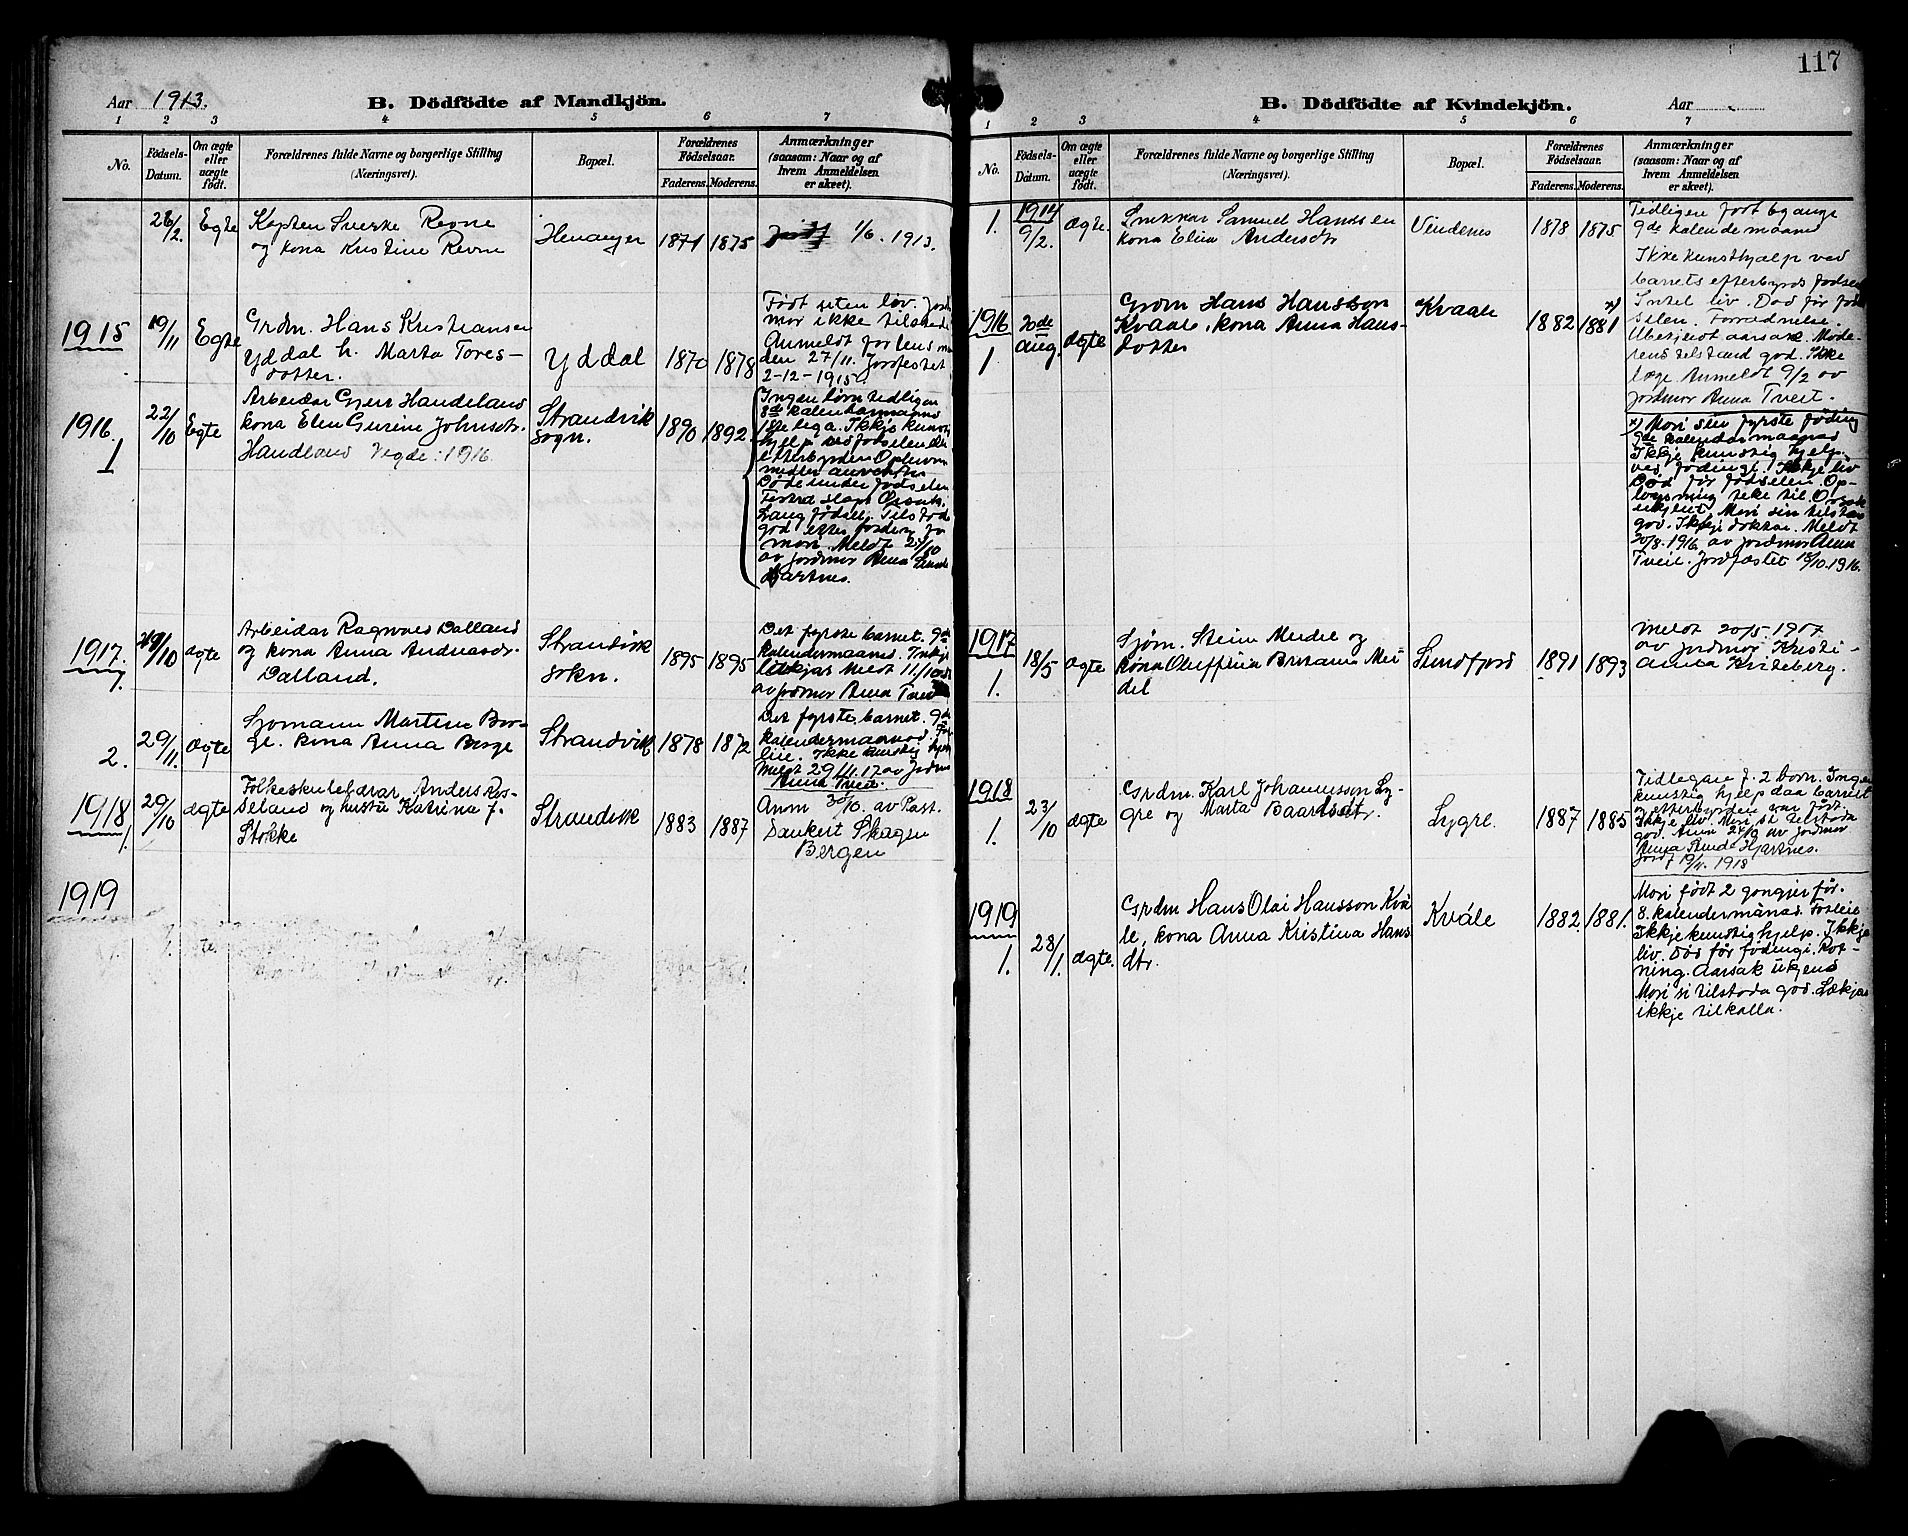 Aar 1913.
B. Dödfödte af Mandkjön.
1 2 3 4 5 6 7
No.
Födsels-Datum.
Om ægte eller uægte födt.
Forældrenes fulde Navne og borgerlige Stilling (Næringsvei).
Bopæl.
Forældrenes Födselsaar.
Faderens. Moderens.
Anmærkninger
(saasom: Naar og af
hvem Anmeldelsen
er skeet).
26/2. Egte
Kapten Sverke Revne
og kona Kristine Revne
Henanger 1871 1875
1/6. 1913.
1915
19/11 Egte
Grdm. Hans Kristiansen
Yddal h. Marta Tores-
dotter.
Yddal 1870 1878
Født uten liv. Jord
mor ikke tilstede
Anmeldt
den 27/11. Jordfestet
2-12-1915.
1916. 1
22/10 Egte
Arbeidar Gjert Handeland
kona Elen Gurine Johnsdtr.
Handland Vegde: 1916.
Strandvik
sogn.
1890 1892
Ingen børn tidligere
8de kalendarmaaned
hjelp ved fødselen
Døde under fødselen
Lang fødsel.
god etter
mori. Meldt 24/10
av jordmor Anna
Hjartnes.
1917. 1.
10 ægte
Arbeidar Ragnvas Dalland
og kona Anna Andreasdr.
Dalland.
Strandvik
sokn.
1895 1895
Det fyrste barnet. 9de
kalendermaaned.
Meldt 11/10
av jordmor Anna Tveit
2.
29/11. ægte
Sjømann Martin Ber-
ge. kona Anna Berge
Strandvik 1878 1872
Det fyrste barnet. 9de
kalendermaaned.
Ikke kunstig hjelp
Meldt 29/11.17 av Jordm
Anna Tveit.
1918 1.
29/10 ægte
Folkeskulelærar Anders Ros-
seland og hustru Katrina f.
Støkke
Strandvik 1883 1887
Anm 30/10. av Past.
Dankert Skagen
Bergen
1919
117
B. Dödfödte af Kvindekjön.
Aar
1 2 3 4 5 6 7
No.
Födsels-Datum.
Om ægte eller uægte födt.
Forældrenes fulde Navne og borgerlige Stilling (Næringsvei).
Bopæl.
Forældrenes Födselsaar.
Faderens. Moderens.
Anmærkninger
(saasom: Naar og af
hvem Anmeldelsen
er skeet).
1. 1914
9/2. ægte.
Snikkar Samuel Handsen
kona Elina Andersdtr
Vindenes 1878 1875
Tidligere født 6 gange
9de kalendemaaned
Ikke kunsthjælp ved
barnets efterbyrds fødsel
Intet liv. Død før fød
selen. Forrædnelse.
Ubekjendt aarsak. Mode-
rens tilstand god. Ikke
læge. Anmeldt 9/2 av
Jordmor Anna Tveit.
1916 1
20de aug. ægte
Grdm Hans Hansson
Kvaale, kona Anna Hans-
dotter
Kvaale 1882 1881 x)
x) Mori sin fyrste føding
9de kalendermaanad
Ikkje kunstig hjelp
ved fødingi. Ikkje liv
Død før fødselen. Op-
løysning teke til. Orsak
ukjent. Mori sin tilstand
god. Ikkje dokter. Meldt
20/8. 1916 av jordmor Anna
Tveit. Jordfæstet 18/10. 1916.
1917 1.
18/5 ægte
Sjøm. Steim Meidel og
kona Oluffina Britania Mei-
del
Sundfjord 1891 1893
Meldt 20/5. 1917
av jordmor Kristi-
anna Kviteberg.
1918 1.
23/10 ægte
Grdm. Karl Johannesson Ly-
gre og Marta Baardsdtr.
Lygre. 1887 1885
Tidlegare f. 2 born. Ingen
kunstig hjelp daa barnet
og efterbyrden var født.
Ikkje liv. Mori si tilstoda
god. Anm 24/10 av jordmor
Anna Sunde Hjartnes.
Jordf 19/11. 1918
1919 1.
28/1. ægte.
Grdm Hans Olai Hansson Kvå-
le, kona Anna Kristina Hans
dtr.
Kvåle 1882 1881.
Mori født 2 gongjer før.
8. kalendermånad.
Ikkje kunstig hjelp. Ikkje
liv. Død før fødingi. Rot-
ning. Aarsak ukjend
Mori si tilstoda god. Lækjar
ikkje tilkalla.